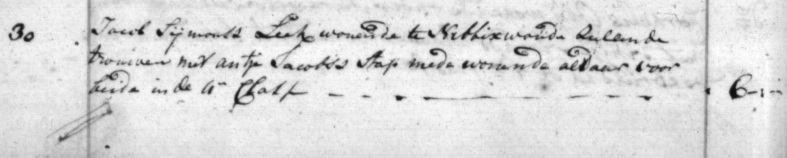 30 Jacob Sijmonsz Leek wonende te Nibbixwoude Sullende
trouwen met antje Jacobs Stap mede wonende aldaar voor
beide in de 4e Classe - - - - - - - - 6-,-